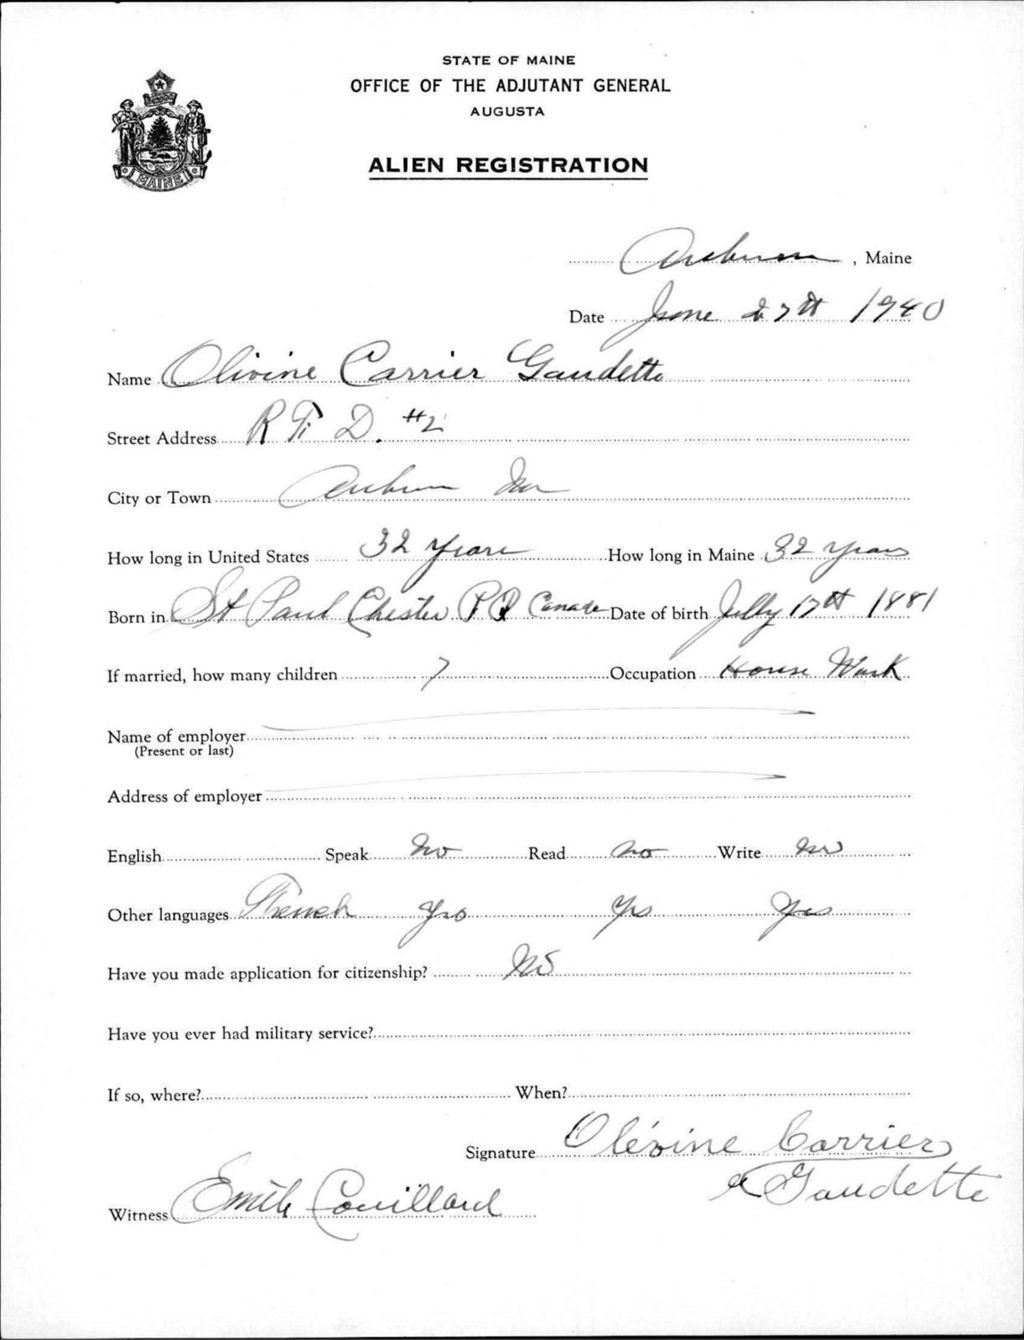 STATE OF MAINE
OFFICE OF THE ADJUTANT GENERAL
AUGUSTA
MAINE
ALIEN REGISTRATION
Auburn, Maine
Date June 27th 1940
Name Olivine Carrier Gaudette
Street Address R. F. D. #2
City or Town Auburn Me
How long in United States 32 Years How long in Maine 32 years
Born in St Paul Chester P Q Canada Date of birth July 17th 1881
If married, how many children 7 Occupation House Work
Name of employer
(Present or last)
Address of employer
English Speak No Read no Write no
Other languages French Yes Yes Yes
Have you made application for citizenship? No
Have you ever had military service?
If so, where? When?
Signature Olévine Carrier
Gaudette
Witness Emile Couillard